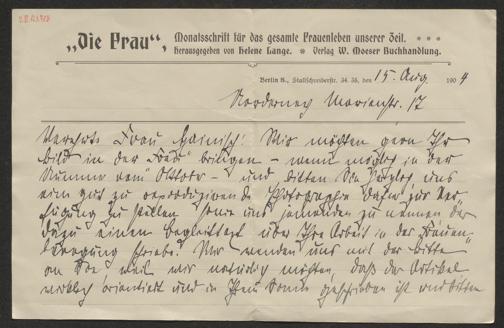 „Die Frau“, Monatsschrift für das gesamte Frauenleben unserer Zeit.
Herausgegeben von Helene Lange. * Verlag W. Moeser Buchhandlung.
Berlin S., Stallschreiberstr. 34. 35, den 15. Aug 1904
Norderney Marienstr. 17
Verehrte Frau Hainisch! Wir möchten gern Ihr
Bild in der „Frau“ bringen – wenn möglich in der
Nummer vom Oktober – und bitten Sie, uns
eine gut zu reproduzirende Photographie dafür zur Ver-
fügung zu stellen, sowie uns jemanden zu nennen, der
dazu einen Begleittext über Ihre Arbeit in der Frauen-
bewegung schriebe. Wir wenden uns mit der Bitte
an Sie, weil wir natürlich möchten, daß der Artikel
wirklich orientiert und in Ihrem Sinne geschrieben ist und bitten